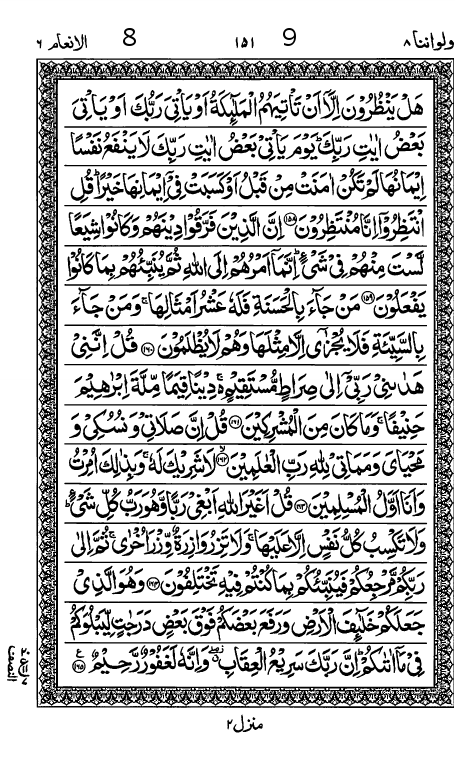 ولواننا ٨ 9 ١٥١ 8 الانعام ٦
هَلْ يَنْظُرُوْنَ اِلَّاۤ اَنْ تَاْتِيَهُمُ الْمَلٰٓئِكَةُ اَوْ يَاْتِيَ رَبُّكَ اَوْ يَاْتِيَ
بَعْضُ اٰيٰتِ رَبِّكَ ؕ يَوْمَ يَاْتِيْ بَعْضُ اٰيٰتِ رَبِّكَ لَا يَنْفَعُ نَفْسًا
اِيْمَانُهَا لَمْ تَكُنْ اٰمَنَتْ مِنْ قَبْلُ اَوْ كَسَبَتْ فِيْۤ اِيْمَانِهَا خَيْرًا ؕ قُلِ
انْتَظِرُوْۤا اِنَّا مُنْتَظِرُوْنَ ﴿١٥٨﴾ اِنَّ الَّذِيْنَ فَرَّقُوْا دِيْنَهُمْ وَكَانُوْا شِيَعًا
لَّسْتَ مِنْهُمْ فِيْ شَيْءٍ ؕ اِنَّمَاۤ اَمْرُهُمْ اِلَى اللّٰهِ ثُمَّ يُنَبِّئُهُمْ بِمَا كَانُوْا
يَفْعَلُوْنَ ﴿١٥٩﴾ مَنْ جَآءَ بِالْحَسَنَةِ فَلَهٗ عَشْرُ اَمْثَالِهَا ۚ وَمَنْ جَآءَ
بِالسَّيِّئَةِ فَلَا يُجْزٰۤى اِلَّا مِثْلَهَا وَهُمْ لَا يُظْلَمُوْنَ ﴿١٦٠﴾ قُلْ اِنَّنِيْ
هَدٰىنِيْ رَبِّيْۤ اِلٰى صِرَاطٍ مُّسْتَقِيْمٍ ۚ دِيْنًا قِيَمًا مِّلَّةَ اِبْرٰهِيْمَ
حَنِيْفًا ۚ وَمَا كَانَ مِنَ الْمُشْرِكِيْنَ ﴿١٦١﴾ قُلْ اِنَّ صَلَاتِيْ وَنُسُكِيْ وَ
مَحْيَايَ وَمَمَاتِيْ لِلّٰهِ رَبِّ الْعٰلَمِيْنَ ۙ﴿١٦٢﴾ لَا شَرِيْكَ لَهٗ ۚ وَبِذٰلِكَ اُمِرْتُ
وَاَنَا اَوَّلُ الْمُسْلِمِيْنَ ﴿١٦٣﴾ قُلْ اَغَيْرَ اللّٰهِ اَبْغِيْ رَبًّا وَّهُوَ رَبُّ كُلِّ شَيْءٍ ؕ
وَلَا تَكْسِبُ كُلُّ نَفْسٍ اِلَّا عَلَيْهَا ۚ وَلَا تَزِرُ وَازِرَةٌ وِّزْرَ اُخْرٰى ۚ ثُمَّ اِلٰى
رَبِّكُمْ مَّرْجِعُكُمْ فَيُنَبِّئُكُمْ بِمَا كُنْتُمْ فِيْهِ تَخْتَلِفُوْنَ ﴿١٦٤﴾ وَهُوَ الَّذِيْ
جَعَلَكُمْ خَلٰٓئِفَ الْاَرْضِ وَرَفَعَ بَعْضَكُمْ فَوْقَ بَعْضٍ دَرَجٰتٍ لِّيَبْلُوَكُمْ
فِيْ مَاۤ اٰتٰىكُمْ ؕ اِنَّ رَبَّكَ سَرِيْعُ الْعِقَابِ ۖ وَاِنَّهٗ لَغَفُوْرٌ رَّحِيْمٌ ﴿١٦٥﴾ ع
النصف
منزل ٢